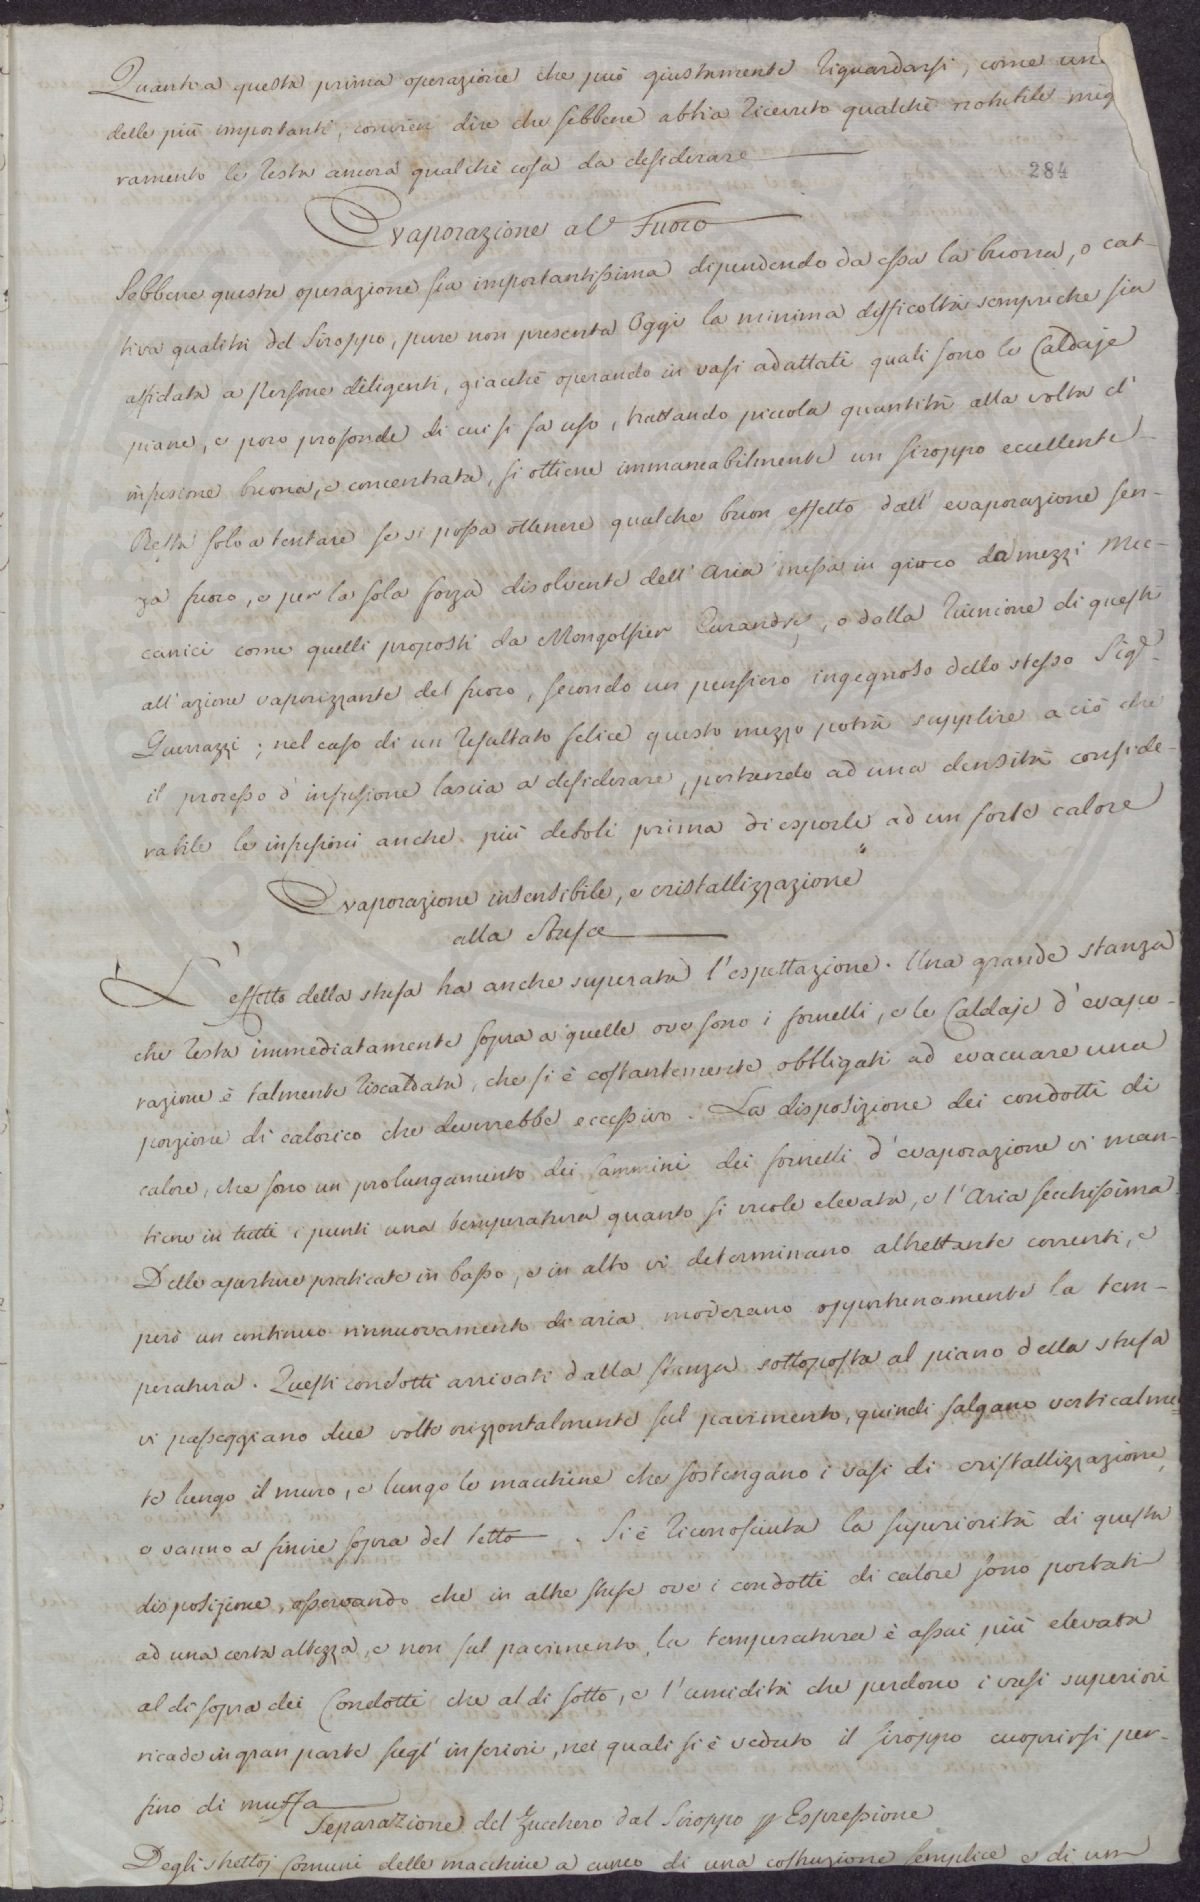 Quanto a questa prima operazione che può giustamente riguardarsi, come un
delle più importanti, convien dire che sebbene abbia ricevuto qualche notabile mig
ramento le resta ancora qualche cosa da desiderare
284
Evaporazione al Fuoco
Sebbene questa operazione sia importantissima dipendendo da essa la buona, o cat-
tiva qualità del Siroppo, pure non presenta Oggi la minima difficoltà sempreche sia
affidata a Persone diligenti, giacchè operando in vasi adattati quali sono le Caldaje
piane, e poco profonde di cui si fa uso, trattando piccola quantità alla volta d'
infusione buona, e concentrata, si ottiene immancabilmente un siroppo eccellente
Resta solo a tentare se si possa ottenere qualche buon effetto dall' evaporazione sen-
za fuoco, e per la sola forza disolvente dell' Aria messa in gioco da mezzi Mec-
canici come quelli proposti da Mongolfier, o dalla riunione di questi
all'azione vaporizzante del fuoco, secondo un pensiero ingegnoso dello stesso Sigr.
Guerrazzi; nel caso di un resultato felice questo mezzo potrà supplire a ciò che
il processo d'infusione lascia a desiderare, portando ad una densità conside-
rabile le infusioni anche più deboli prima di esporle ad un forte calore
Evaporazione insensibile, e cristallizzazione
alla Stufa
L'effetto della stufa ha anche superata l'espettazione. Una grande stanza
che resta immediatamente sopra a quelle ove sono i fornelli, e le Caldaje d'evapo-
razione è talmente riscaldata, che si è costantemente obbligati ad evacuare una
porzione di calorico che deverrebbe eccessivo. La disposizione dei condotti di
calore, che sono un prolungamento dei Cammini dei fornelli d'evaporazione vi man-
tiene in tutti i punti una temperatura quanto si vuole elevata, e l'Aria secchissima
Delle aperture praticate in basso, e in alto vi determinano altrettante correnti, e
però un continuo rinnuovamento di aria moderano opportunamente la tem-
peratura. Questi condotti arrivati dalla stanza sottoposta al piano della stufa
vi passeggiano due volte orizzontalmente sul pavimento, quindi salgano verticalmen
te lungo il muro, e lungo le macchine che sostengano i vasi di cristallizzazione,
e vanno a finire sopra del tetto. Si è riconosciuta la superiorità di questa
disposizione, osservando che in altre stufe ove i condotti di calore sono portati
ad una certa altezza, e non sul pavimento, la temperatura è assai più elevata
al di sopra dei Condotti che al di sotto, e l'umidità che perdono i vasi superiori
ricade in gran parte sugl' inferiori, nei quali si è veduto il siroppo cuoprirsi per-
fino di muffa
Separazione del Zucchero dal Siroppo p Espressione
Degli strettoj comuni delle macchine a cuneo di una costruzione semplice e di un